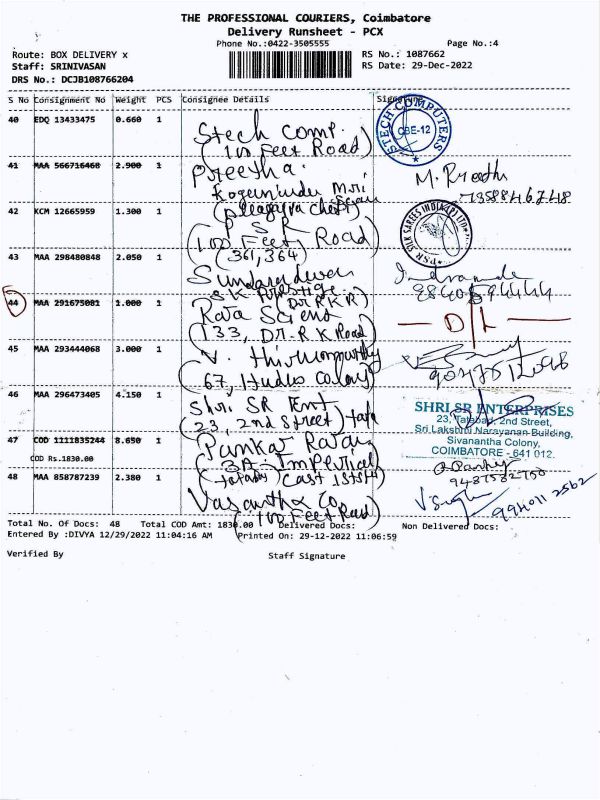 THE PROFESSIONAL COURIERS, Coimbatore
Delivery Runsheet - PCX
Phone No.:0422-3505555
Page No.:4
Route: BOX DELIVERY x
RS No.: 1087662
Staff: SRINIVASAN
RS Date: 29-Dec-2022
DRS No.: DCJB108766204
S No Consignment No Weight PCS Consignee Details Signature
40 EDQ 13433475 0.660 1
Stech Comp.
(100 Feet Road)
STECH COMPUTERS
CBE-12
41 MAA 566716468 2.900 1
Preetha.
42 KCM 12665959 1.300 1
P S R
(100 Feet Road)
(361,364)
PSR SILK SAREES INDIA (P) LTD
43 MAA 298480848 2.050 1
(Dr R K R)
44 MAA 291675081 1.000 1
(133, Dr. R K Road)
D/L
45 MAA 293444068 3.000 1
V. thirumoorthy
(67, Hudco Colony)
46 MAA 296473405 4.150 1
Shri SR Ent
(23, 2nd Street) tata
SHRI SR ENTERPRISES
23, Tatabad, 2nd Street,
Sri Lakshmi Narayanan Building,
Sivanantha Colony,
COIMBATORE - 641 012.
47 COD 1111835244 8.650 1
COD Rs.1830.00
(3A-Imperial
48 MAA 858787239 2.380 1
Vasantha Co
(100 Feet Road)
994011 2562
Total No. Of Docs: 48 Total COD Amt: 1830.00 Delivered Docs: Non Delivered Docs:
Entered By :DIVYA 12/29/2022 11:04:16 AM Printed On: 29-12-2022 11:06:59
Verified By Staff Signature